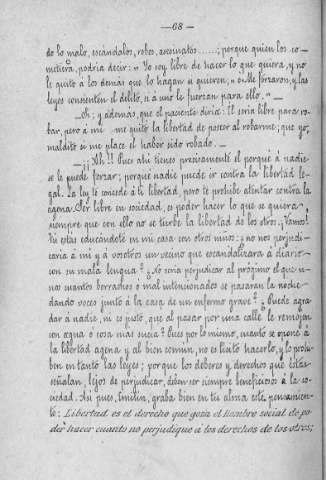 —68—
do lo malo, escándalos, robos, asesinatos......; porque quien los co-
metiera, podría decir: "Yo soy libre de hacer lo que quiera, y no
le quito á los demás que lo hagan si quieren;" ó "Me forzaron, y las
leyes consienten el delito, si á uno le fuerzan para ello." —
—Oh; y además, que el paciente diría: El sería libre para ro-
bar, pero á mi me quitó la libertad de poseer al robarme; que yo,
maldito si me place el haber sido robado. —
—¡¡Ah!! Pues ahí tienes precisamente el porqué á nadie
se le puede forzar; porque nadie puede ir contra la libertad le-
gal. La ley te concede á ti libertad, pero te prohibe atentar contra la
agena. Ser libre en sociedad, es poder hacer lo que se quiera,
siempre que con ello no se turbe la libertad de los otros. ¡Vamos!
Tú estás educándote en mi casa con otros niños: ¿no nos perjudi-
caría á mi y á vosotros un vecino que escandalizara á diario
con su mala lengua? ¿No sería perjudicar al prójimo el que u-
nos cuantos borrachos ó mal intencionados se pasaran la noche
dando voces junto á la casa de un enfermo grave? ¿Puede agra-
dar á nadie, ni es justo, que al pasar por una calle le remojen
con agua ó cosa más sucia? Pues por lo mismo, cuanto se opone á
la libertad agena y al bien comun, no es lícito hacerlo, y lo prohi-
ben en tanto las leyes; porque los deberes y derechos que éstas
señalan, lejos de perjudicar, deben ser siempre beneficiosos á la so-
ciedad. Así pues, Emilia, graba bien en tu alma este pensamien-
to: Libertad es el derecho que goza el hombre social de po-
der hacer cuanto no perjudique á los derechos de los otros;